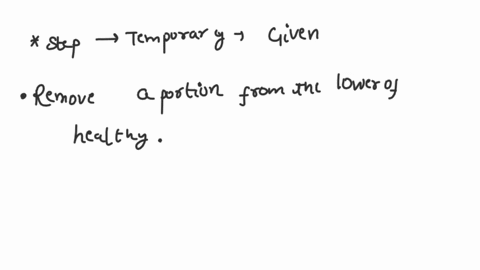 * Step → Temporary → Given
• Remove a portion from the lower of
healthy.